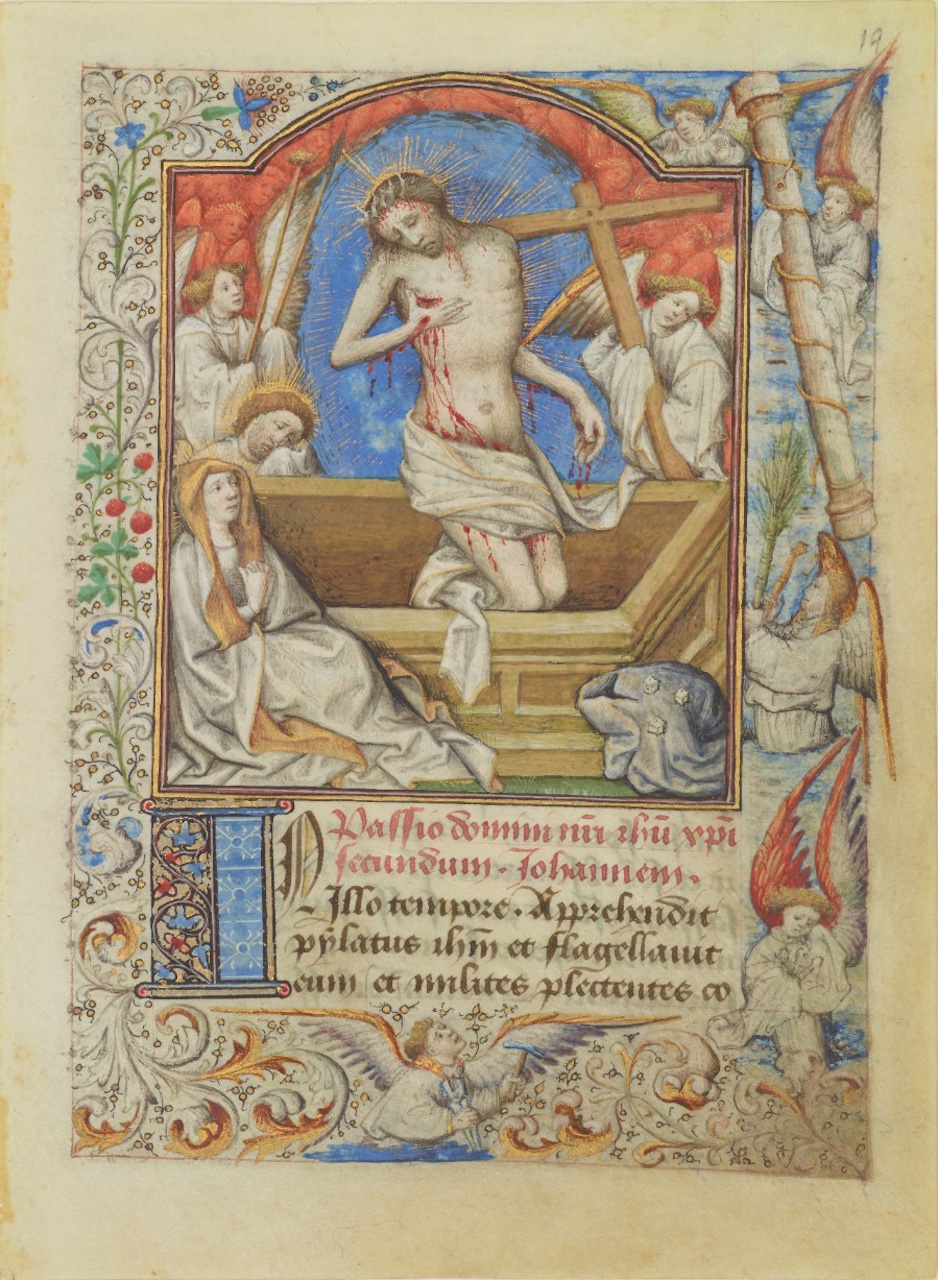 19
Passio domini nr̄i ihū xp̄i
secundum. Johannem.
IN Illo tempore. Apprehendit
pylatus ihm̄ et flagellauit
eum et milites plectentes co